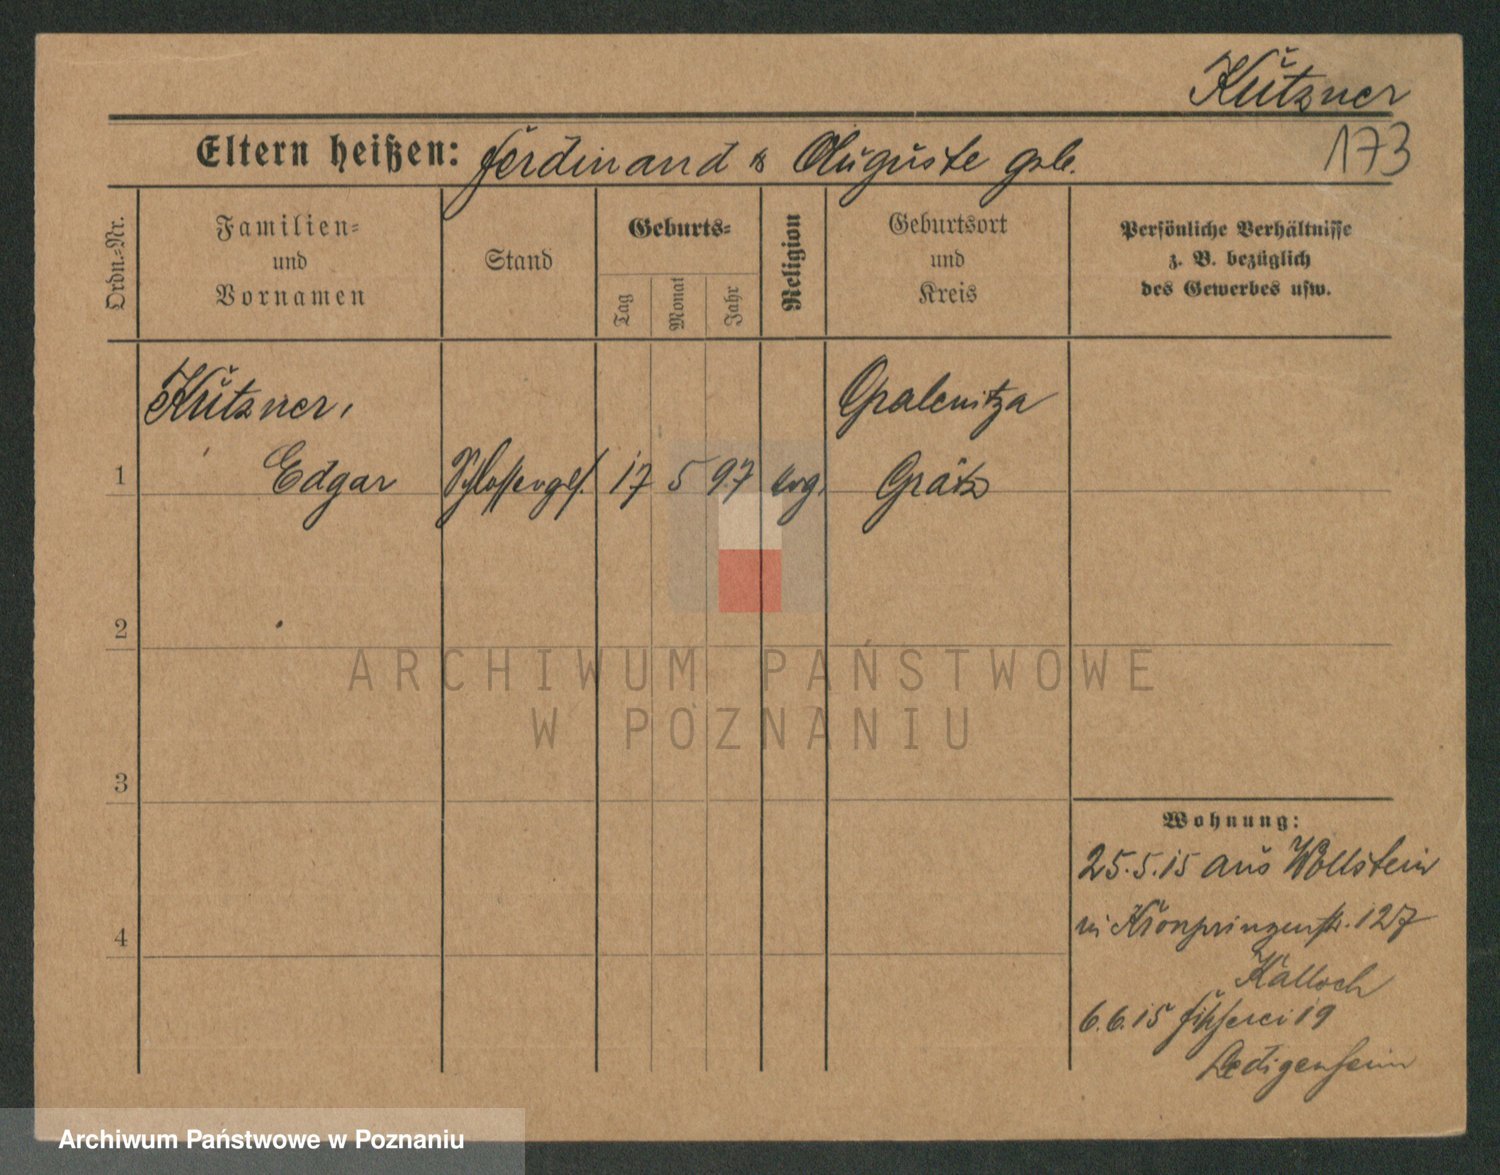 Kutzner
173
Eltern heißen: Ferdinand & Auguste geb.
Ordn.-Nr.
Familien-
und
Vornamen
Stand
Geburts-
Tag
Monat
Jahr
Religion
Geburtsort
und
Kreis
Persönliche Verhältnisse
z. B. bezüglich
des Gewerbes usw.
Kutzner,
Opalenitza
1 Edgar Schlossergs. 17 5 97 evg. Grätz
2
ARCHIWUM PAŃSTWOWE
W POZNANIU
3
Wohnung:
25.5.15 aus Wollstein
4
Kronprinzenstr. 127
Kalloch
6.6.15 Fischerei 19
Ledigenheim
Archiwum Państwowe w Poznaniu